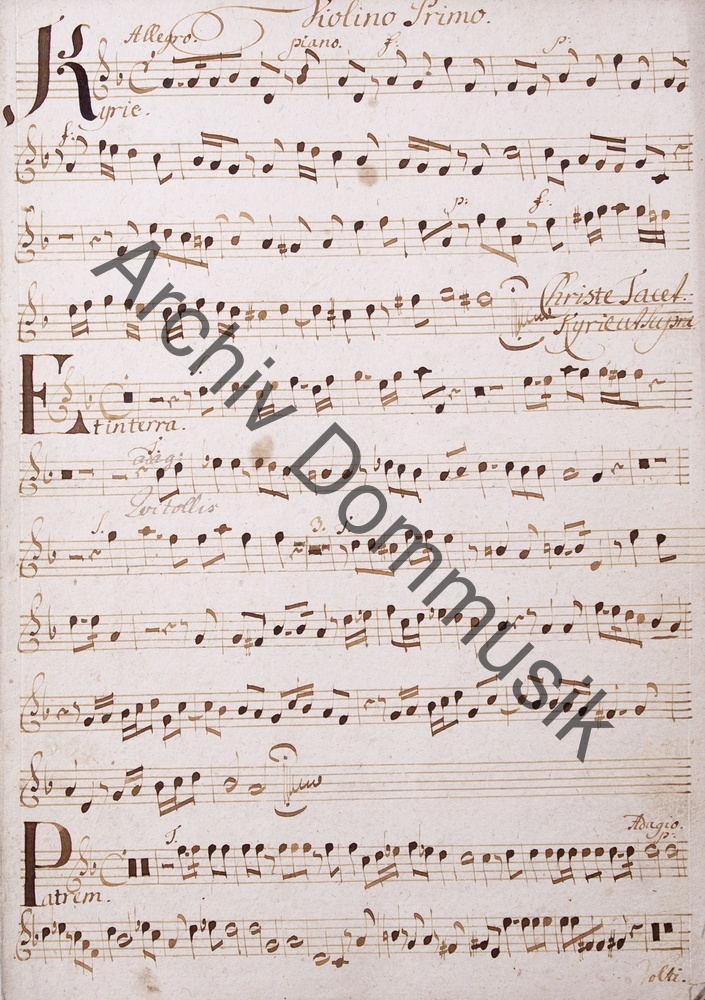 Violino Primo.
Allegro. piano. f: p:
Kyrie.
f:
p: f:
Christe Tacet.
Kyrie ut supra
Et in terra.
Qui tollis
3.
Adagio.
p:
Patrem.
Volti.
Archiv Dommusik